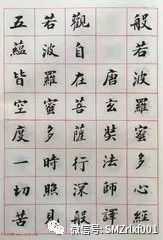 般若波羅蜜多心經
唐玄奘法師譯
觀自在菩薩行深般
若波羅蜜多時照見
五蘊皆空度一切苦
微信号:SMZrlxf001